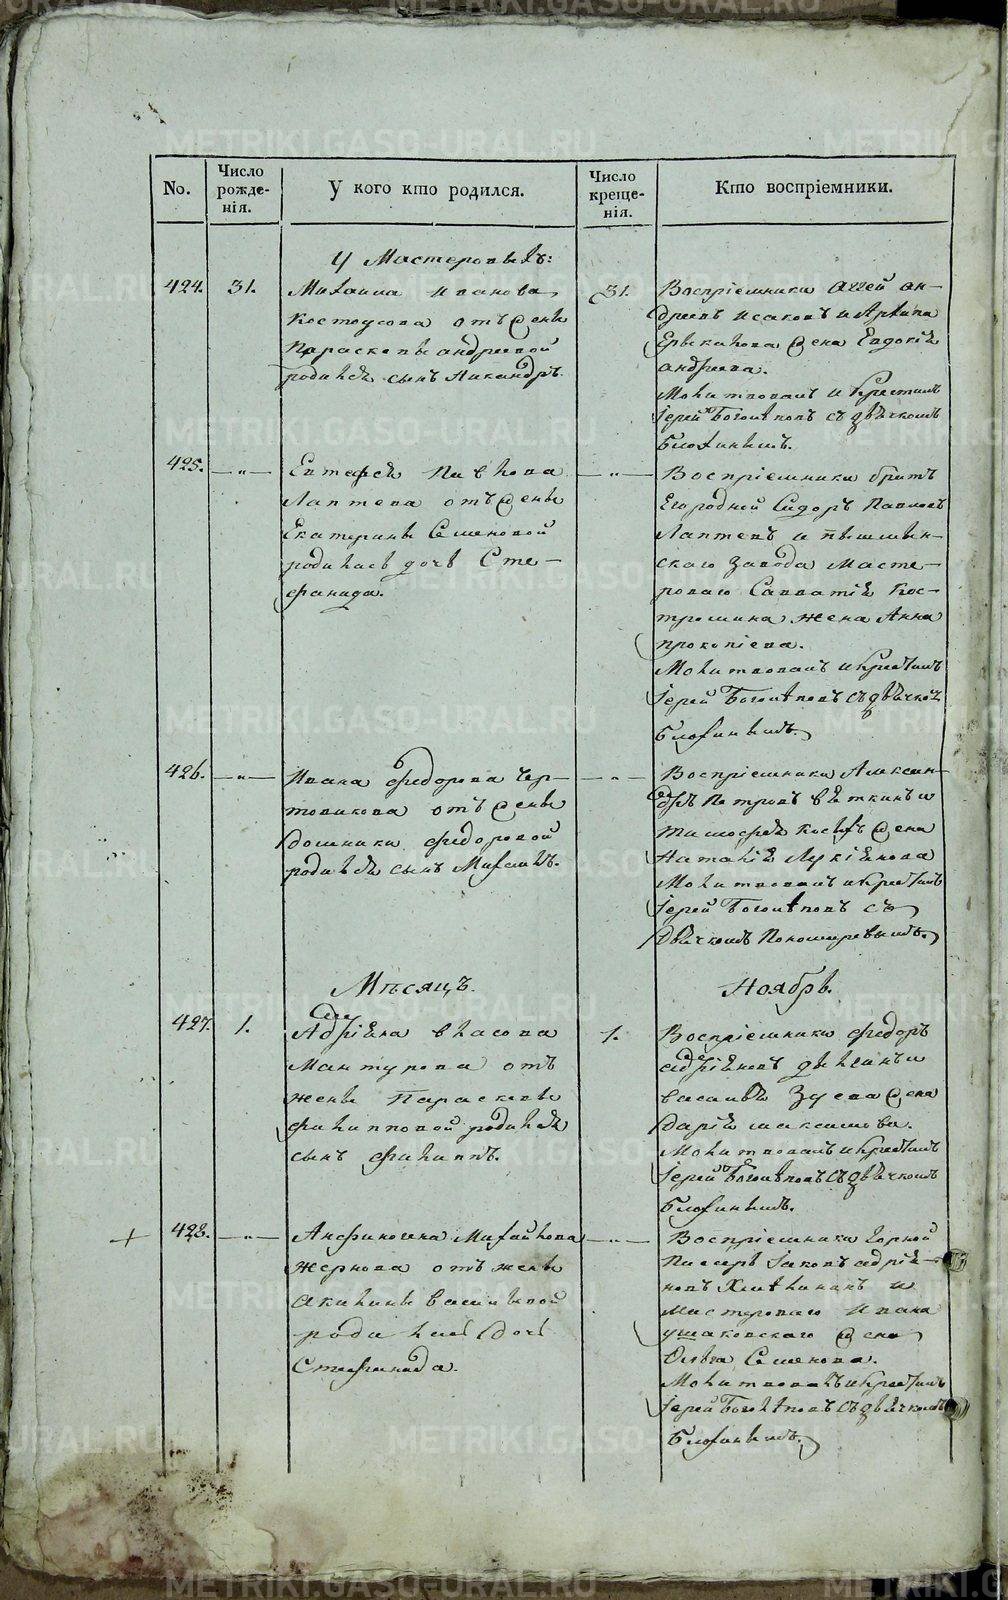 METRIKI.GASO-URAL.RU
No.
Число рожде-нія.
У кого кто родился.
Число креще-нія.
Кто воспріемники.
У Мастеровыхъ:
424.
31.
Михаила Иванова
Костоусова отъ жены
Параскевы андреевой
родился сынъ Никандръ.
31.
Воспріемники
андреевъ Исаковъ и Архипа
жена Евдокія
андреева.
Молитвовалъ и Крестилъ
Іерей Боголѣповъ съ дьячкомъ
Блохинымъ.
425.
—„—
Евтефея Павлова
Лаптева отъ жены
Екатерины Семеновой
родилась дочь Сте-
фанида.
—„—
Воспріемники братъ
Егородной Сидоръ Павловъ
Лаптевъ и Пышмин-
скаго завода Масте-
роваго Савватія Кос-
тромина жена Анна
прокопіева.
Молитвовалъ и Крестилъ
Іерей Боголѣповъ съ дьячком
Блохинымъ.
426.
—„—
Ивана Федорова Чер-
товикова отъ жены
Домники федоровой
родился сынъ Михаилъ.
—„—
Воспріемники Алексан-
дръ Петровъ Вяткинъ и
Тимофея жена
Наталія Лукіянова
Молитвовалъ и Крестилъ
Іерей Боголѣповъ съ
Дьячкомъ Пономаревымъ.
Мѣсяцъ.
Ноябрь.
427.
1.
Адріяна Власова
Мантурова отъ
жены Параскевы
филипповой родился
сынъ филиппъ.
1.
Воспріемники федоръ
адріяновъ и
василья Зуева жена
Дарія максимова.
Молитвовалъ и Крестилъ
Іерей Боголѣповъ съ дьячкомъ
Блохинымъ.
+
428.
—„—
Анфиногена Михайлова
Жернова отъ жены
Акилины васильевой
родилась дочь
Стефанида.
—„—
Воспріемники Горной
Писарь Іаковъ адрія-
новъ и
Мастероваго Ивана
ушаковскаго жена
Ольга Семенова.
Молитвовалъ и Крестилъ
Іерей Боголѣповъ съ дьячкомъ
Блохинымъ.